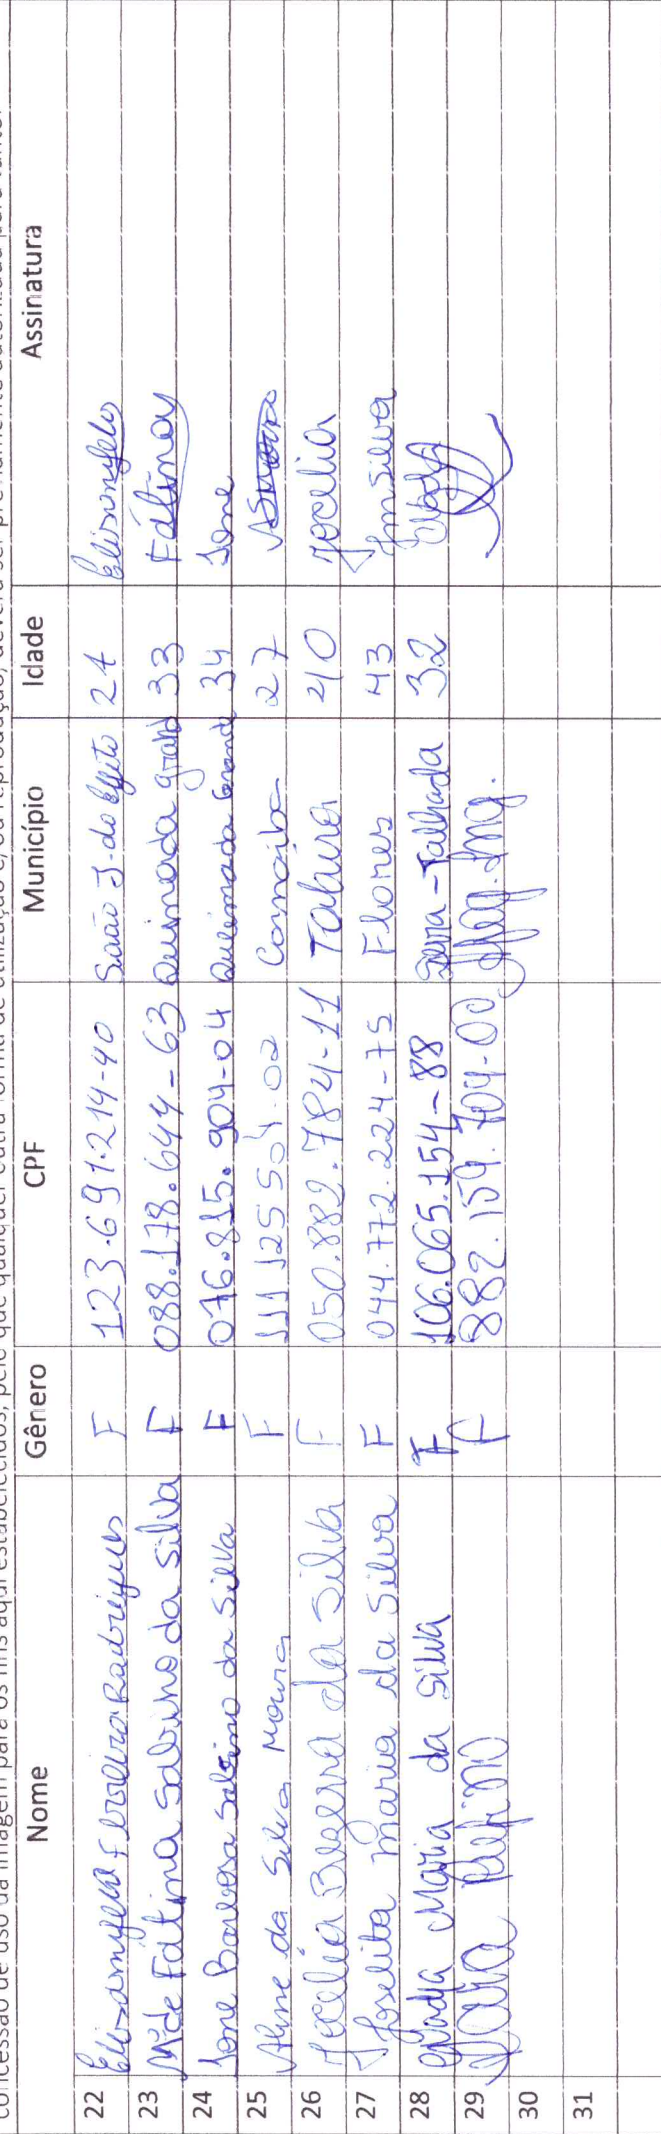 concessão de uso da imagem para os fins aqui estabelecidos, pelo que qualquer outra forma de utilização e/ou reprodução, deverá ser previamente autorizada para tanto.
Nome Gênero CPF Município Idade Assinatura
22 Rodrigues F 123.691.214-40 São J. do Egito 24
23 Mª de Fátima Sabino da Silva F 088.178.644-63 Quimada grand 33 Fátima
24 Ione Barbosa Sabino da Silva F 076.815.904-04 Queimada Grande 34 Ione
25 Aline da Silva Moura F 111125504-02 27
26 Jocelia Bezerra da Silva F 050.882.784-11 Tabira 40 Jocelia
27 Joselita Maria da Silva F 044.772.224-75 Flores 43 Jmsilva
28 Maria da Silva F 106.065.154-88 Serra-Talhada 32
29 Rufino F 882.159.704-00
30
31